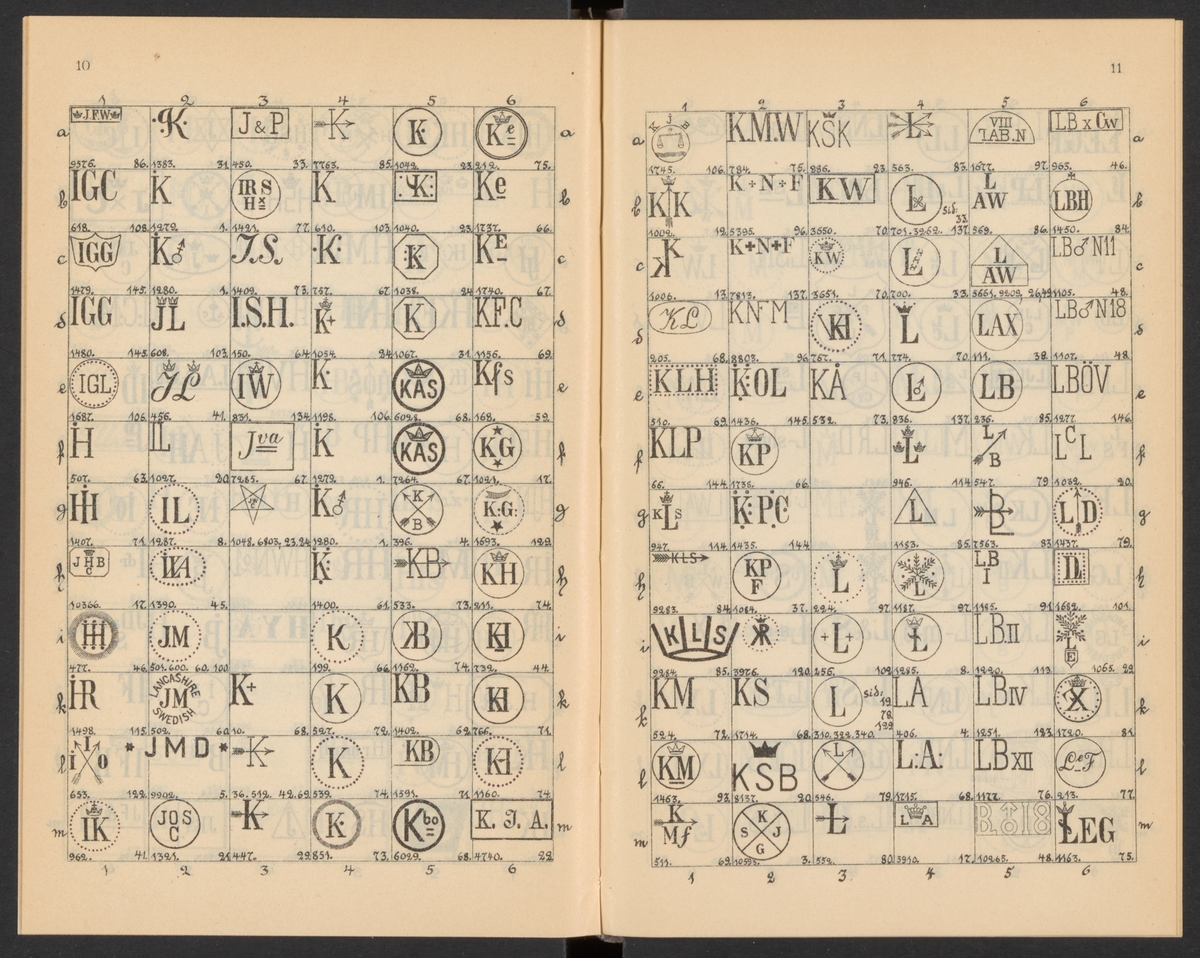 10
1 2 3 4 5 6
a J.F.W K J&P K K Ke a
9576. 86. 1383. 31. 450. 33. 7763. 85. 1042. 23. 212. 75.
b IGC K IRS H K K Ke b
618. 108. 1279. 1. 1421. 77. 610. 103. 1040. 23. 1737. 66.
c IGG K♂ J.S. K K KE c
1479. 145. 1280. 1. 1409. 73. 757. 67. 1038. 24. 1740. 67.
d IGG JL I.S.H. K+ K KF.C d
1480. 145. 608. 103. 150. 64. 1054. 24. 1067. 31. 1156. 69.
e IGL JL IW K KAS Kfs e
1687. 106. 456. 41. 831. 134. 1198. 106. 6028. 68. 168. 59.
f H IL Jva K KAS KG f
507. 63. 1027. 20. 7285. 67. 1279. 1. 7264. 67. 1021. 17.
g IH IL K♂ K B K:G: g
1407. 71. 1287. 8. 1048. 6803. 23,24. 1280. 1. 396. 4. 1693. 129.
h JHB C IWA K KB KH h
10366. 17. 1390. 45. 1400. 61. 533. 73. 211. 74.
i IHI JM K KB KH i
477. 46. 501. 600. 60. 100. 199. 66. 1162. 74. 732. 44.
k HR LANCASHIRE JM SWEDISH K+ K KB KH k
1498. 115. 502. 60. 10. 68. 527. 72. 1402. 62. 766. 71.
l I I O * JMD * K K KB KH l
653. 122. 9902. 5. 36. 512. 42. 69. 539. 74. 1591. 71. 1160. 74.
m IK JOS C K K Kbo K. J. A. m
962. 41. 1321. 21. 447. 29. 851. 73. 6029. 68. 4740. 22.
1 2 3 4 5 6
11
1 2 3 4 5 6
a K J B K.M.W KŠK L VIII LAB.N LB x Cw a
1745. 106. 784. 75. 986. 23. 563. 83. 1677. 97. 963. 46.
b K K K+N+F KW L sid. 33. L AW LBH b
1002. 12. 5395. 96. 3650. 70. 701. 3262. 137. 569. 86. 1450. 84.
c K K K+N+F KW L L AW LB♂N11 c
1006. 13. 7813. 137. 3651. 70. 700. 33. 5661. 9209. 26,49. 1105. 48.
d KL KNFM KH L LAX LB♂N18 d
205. 68. 8803. 96. 767. 71. 774. 70. 111. 38. 1107. 48.
e KLH K:OL KÅ L♂ LB LBÖV e
510. 69. 1436. 145. 532. 73. 836. 137. 236. 85. 1277. 146.
f KLP KP L L B LCL f
66. 144. 1738. 66. 946. 114. 547. 79. 1032. 20.
g KLS K:P:C L B LD g
947. 114. 1435. 144. 1153. 85. 7563. 83. 1437. 79.
h KLS KP F L L LB I h
9283. 84. 1084. 37. 224. 97. 1187. 97. 1185. 91. 1682. 101.
i KLS KR +L+ L LB II L E i
9284. 85. 3976. 120. 256. 109. 1285. 8. 1220. 113. 1065. 22.
k KM KS L sid: 19 78 129 LA LB IV X k
524. 72. 1714. 68. 310. 322. 340. 406. 4. 1251. 123. 1720. 81.
l KM KSB L L:A: LB XII L&F l
1463. 93. 8137. 20. 546. 79. 1715. 68. 1177. 76. 213. 77.
m K Mf S K J G L LA B♂18 LEG m
511. 69. 10593. 3. 552. 80. 3910. 17. 10265. 48. 1163. 75.
1 2 3 4 5 6